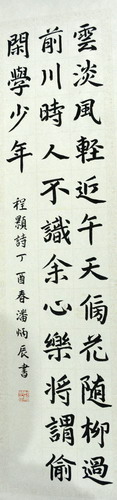 雲淡風輕近午天傍花随柳過
前川時人不識余心樂將謂偷
閑學少年
程顥詩丁酉春潘炳辰書